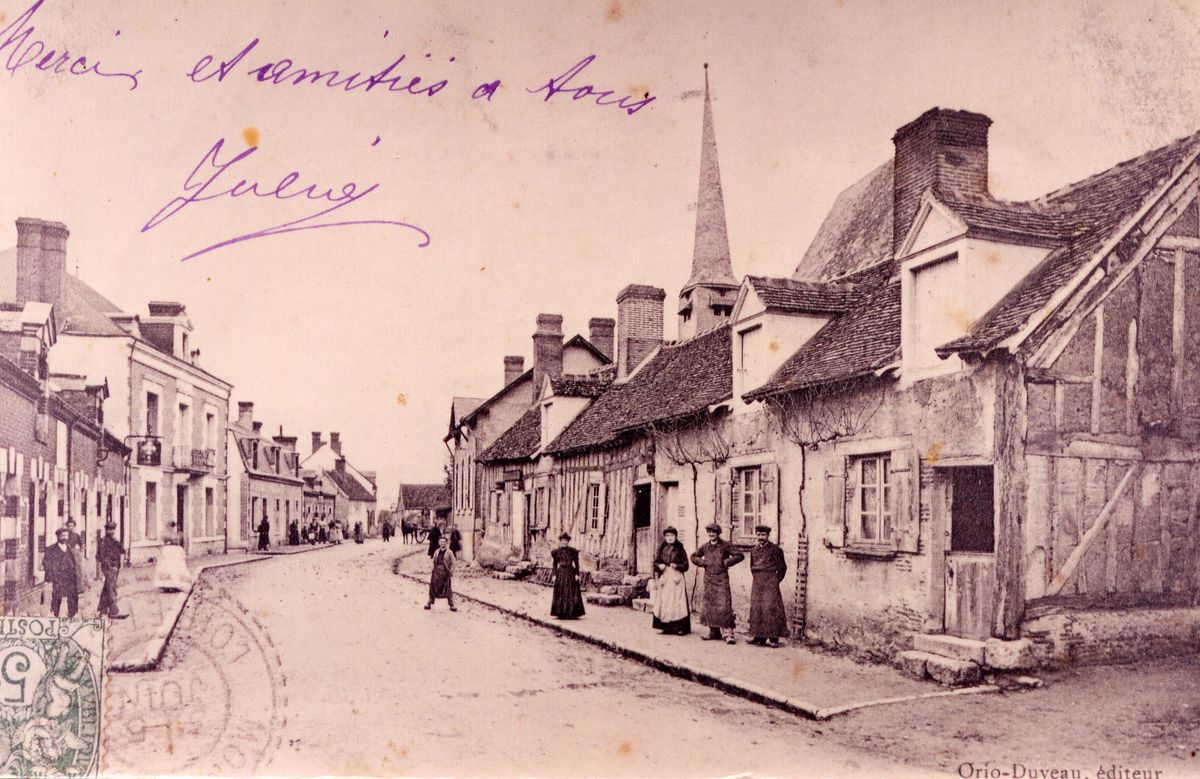 Merci, et amitiés a tous
POSTE
5
Orio-Duveau, éditeur